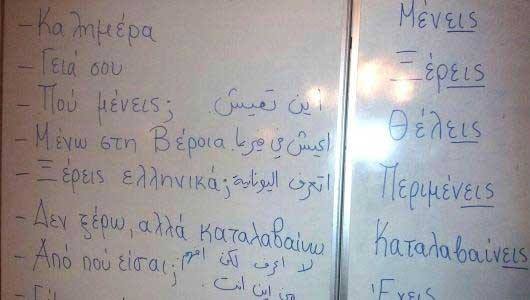 - Καλημέρα
- Γειά σου
- Πού μένεις; أين تعيش
- Μένω στη Βέροια اعيش في فيريا
- Ξέρεις ελληνικά; اتعرف اليونانية
- Δεν ξέρω, αλλά καταλαβαίνω
لا اعرف لكن افهم
- Από πού είσαι; من اين انت
Μένεις
Ξέρεις
Θέλεις
Περιμένεις
Καταλαβαίνεις
Έχεις